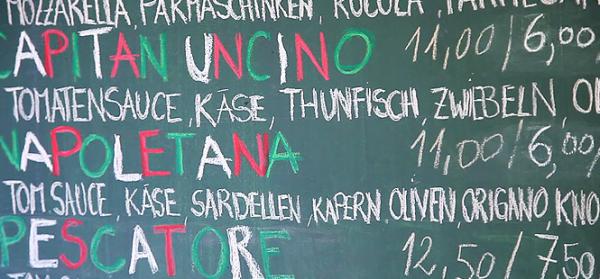 MOZZARELLA, PARMASCHINKEN, RUCOLA, PARMESAN
CAPITAN UNCINO 11,00/6,00
TOMATENSAUCE, KÄSE, THUNFISCH, ZWIEBELN,
NAPOLETANA 11,00/6,00
TOM SAUCE, KÄSE, SARDELLEN, KAPERN, OLIVEN, ORIGANO, KNO
PESCATORE 12,50/7,50